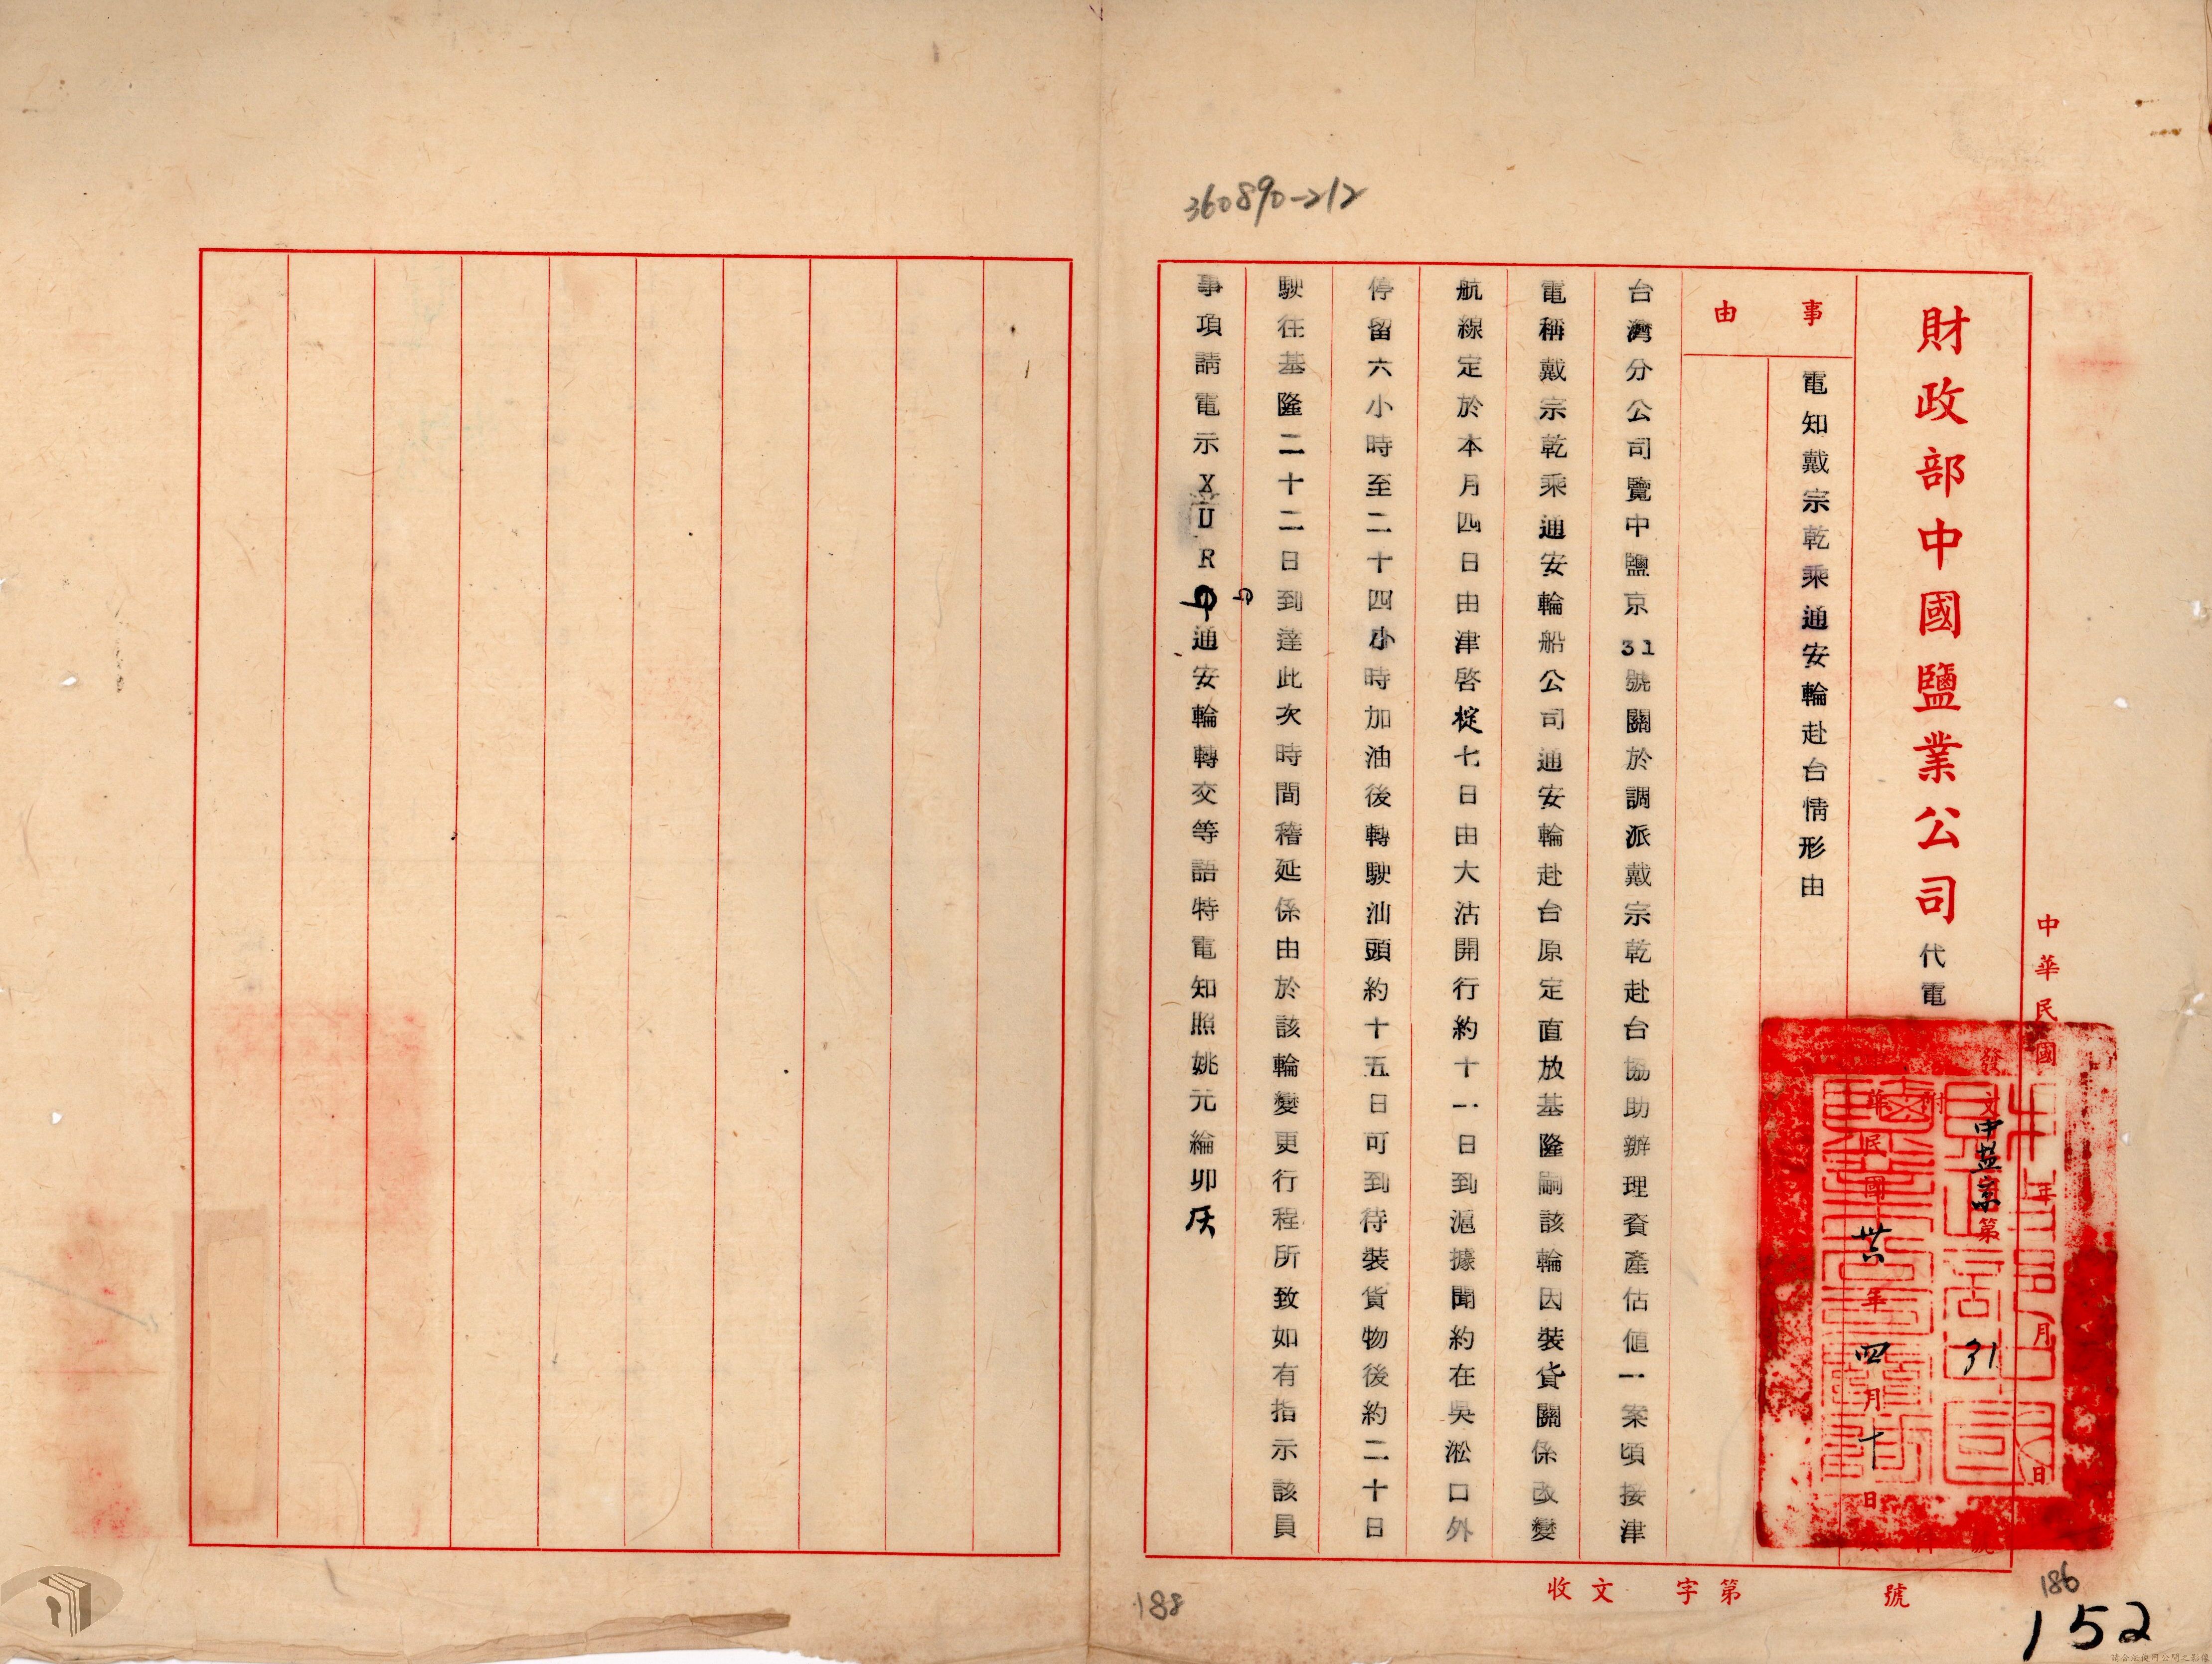 360890-212
財政部中國鹽業公司代電
中華民國 年 月 日
發文 中益京 第 31 號
附 件
華民國 卅六 年 四 月 十 日
事由
電知戴宗乾乘通安輪赴台情形由
台灣分公司覽中鹽京31號關於調派戴宗乾赴台協助辦理資產估值一案頃接津
電稱戴宗乾乘通安輪船公司通安輪赴台原定直放基隆嗣該輪因裝貨關係改變
航線定於本月四日由津啓椗七日由大沽開行約十一日到滬據聞約在吳淞口外
停留六小時至二十四小時加油後轉駛汕頭約十五日可到待裝貨物後約二十日
駛往基隆二十二日到達此次時間稽延係由於該輪變更行程所致如有指示該員
事項請電示XUR通安輪轉交等語特電知照姚元綸卯
收文 字第 號
188
186
152
請合法使用公開之影像